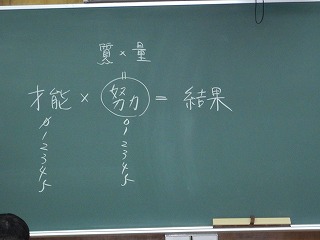 質×量
=
才能 × 努力 = 結果
0 0
1 1
2 2
3 3
4 4
5 5